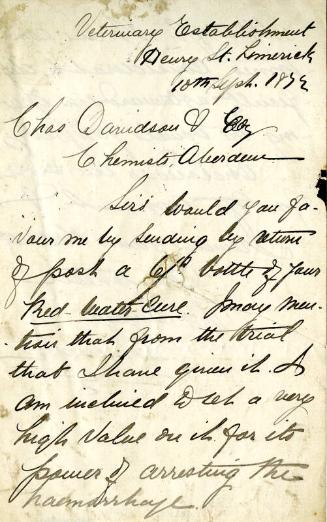 Veterinary Establishment
Henry St. Limerick
10th Sept. 1872
Chas Davidson & Coy
Chemists Aberdeen
Sirs would you fa-
vour me by sending by return
of post a bottle of your
Red-water Cure. I may men-
tion that from the trial
that I have given it. I
am inclined to set a very
high value on it for its
power of arresting the
haemorrhage